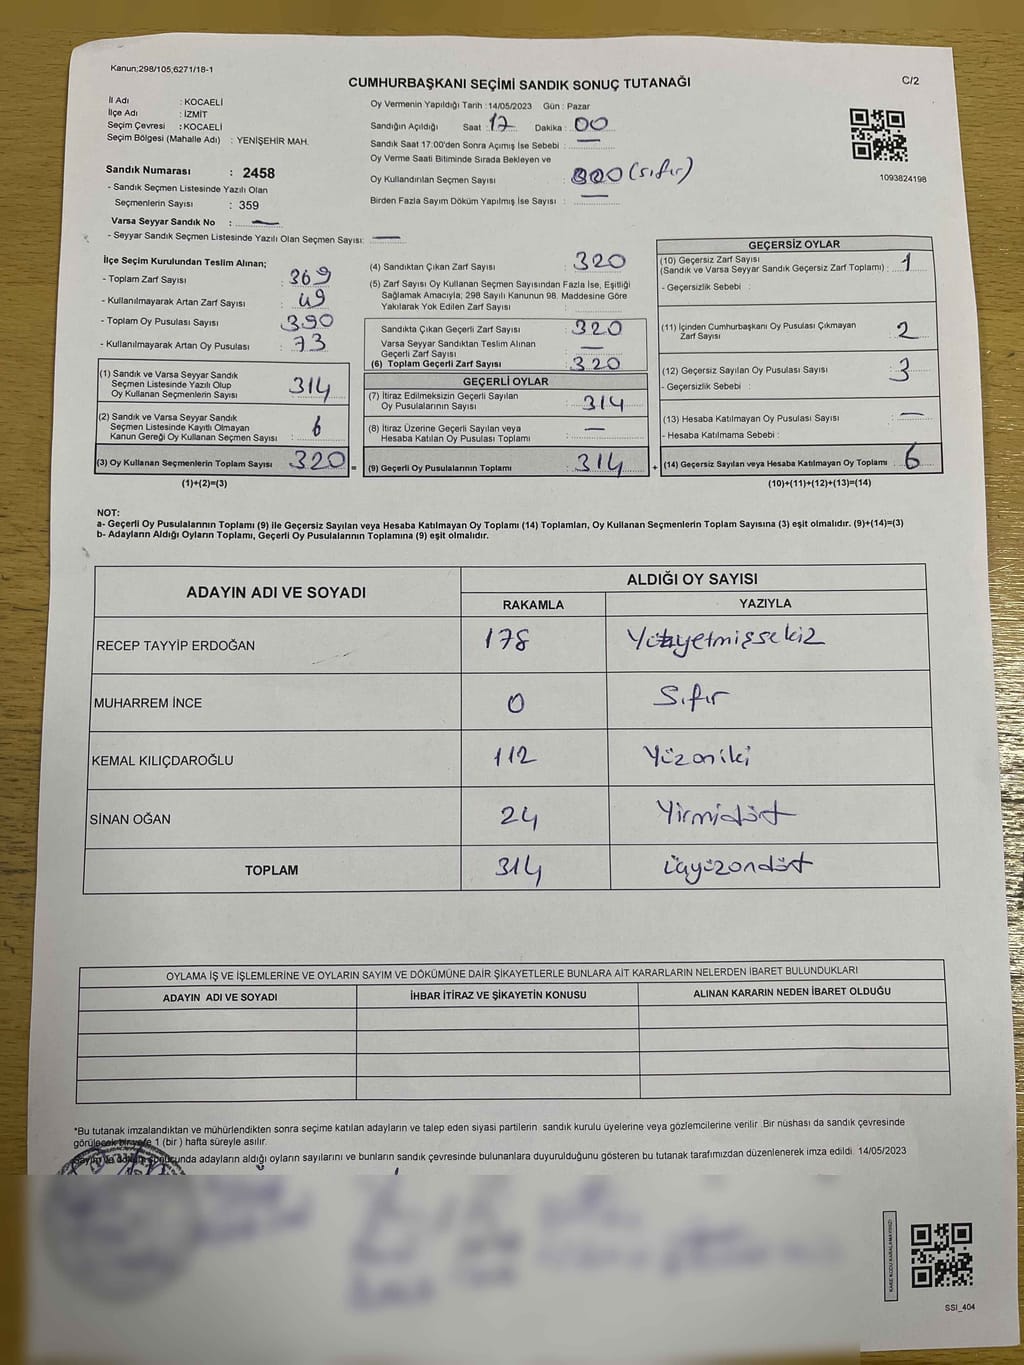 Kanun;298/105,6271/18-1
CUMHURBAŞKANI SEÇİMİ SANDIK SONUÇ TUTANAĞI
C/2
İl Adı : KOCAELİ
İlçe Adı : İZMİT
Seçim Çevresi : KOCAELİ
Seçim Bölgesi (Mahalle Adı) : YENİŞEHİR MAH.
Sandık Numarası : 2458
- Sandık Seçmen Listesinde Yazılı Olan
Seçmenlerin Sayısı : 359
Varsa Seyyar Sandık No : —
- Seyyar Sandık Seçmen Listesinde Yazılı Olan Seçmen Sayısı: —
Oy Vermenin Yapıldığı Tarih :14/05/2023 Gün : Pazar
Sandığın Açıldığı Saat : 17 Dakika : 00
Sandık Saat 17:00'den Sonra Açımış İse Sebebi : —
Oy Verme Saati Bitiminde Sırada Bekleyen ve
Oy Kullandırılan Seçmen Sayısı : 000 (sıfır)
Birden Fazla Sayım Döküm Yapılmış İse Sayısı : —
1093824198
İlçe Seçim Kurulundan Teslim Alınan;
- Toplam Zarf Sayısı : 369
- Kullanılmayarak Artan Zarf Sayısı : 49
- Toplam Oy Pusulası Sayısı : 390
- Kullanılmayarak Artan Oy Pusulası : 73
(1) Sandık ve Varsa Seyyar Sandık
Seçmen Listesinde Yazılı Olup
Oy Kullanan Seçmenlerin Sayısı : 314
(2) Sandık ve Varsa Seyyar Sandık
Seçmen Listesinde Kayıtlı Olmayan
Kanun Gereği Oy Kullanan Seçmen Sayısı : 6
(3) Oy Kullanan Seçmenlerin Toplam Sayısı : 320
(1)+(2)=(3)
(4) Sandıktan Çıkan Zarf Sayısı : 320
(5) Zarf Sayısı Oy Kullanan Seçmen Sayısından Fazla İse, Eşitliği
Sağlamak Amacıyla; 298 Sayılı Kanunun 98. Maddesine Göre
Yakılarak Yok Edilen Zarf Sayısı :
Sandıkta Çıkan Geçerli Zarf Sayısı : 320
Varsa Seyyar Sandıktan Teslim Alınan
Geçerli Zarf Sayısı : —
(6) Toplam Geçerli Zarf Sayısı : 320
GEÇERLİ OYLAR
(7) İtiraz Edilmeksizin Geçerli Sayılan
Oy Pusulalarının Sayısı : 314
(8) İtiraz Üzerine Geçerli Sayılan veya
Hesaba Katılan Oy Pusulası Toplamı : —
= (9) Geçerli Oy Pusulalarının Toplamı : 314 +
GEÇERSİZ OYLAR
(10) Geçersiz Zarf Sayısı
(Sandık ve Varsa Seyyar Sandık Geçersiz Zarf Toplamı) : 1
- Geçersizlik Sebebi :
(11) İçinden Cumhurbaşkanı Oy Pusulası Çıkmayan
Zarf Sayısı : 2
(12) Geçersiz Sayılan Oy Pusulası Sayısı : 3
- Geçersizlik Sebebi :
(13) Hesaba Katılmayan Oy Pusulası Sayısı : —
- Hesaba Katılmama Sebebi :
(14) Geçersiz Sayılan veya Hesaba Katılmayan Oy Toplamı : 6
(10)+(11)+(12)+(13)=(14)
NOT:
a- Geçerli Oy Pusulalarının Toplamı (9) ile Geçersiz Sayılan veya Hesaba Katılmayan Oy Toplamı (14) Toplamları, Oy Kullanan Seçmenlerin Toplam Sayısına (3) eşit olmalıdır. (9)+(14)=(3)
b- Adayların Aldığı Oyların Toplamı, Geçerli Oy Pusulalarının Toplamına (9) eşit olmalıdır.
ADAYIN ADI VE SOYADI
ALDIĞI OY SAYISI
RAKAMLA YAZIYLA
RECEP TAYYİP ERDOĞAN 178 Yüzyetmişsekiz
MUHARREM İNCE 0 Sıfır
KEMAL KILIÇDAROĞLU 112 Yüzoniki
SİNAN OĞAN 24 Yirmidört
TOPLAM 314 üçyüzondört
OYLAMA İŞ VE İŞLEMLERİNE VE OYLARIN SAYIM VE DÖKÜMÜNE DAİR ŞİKAYETLERLE BUNLARA AİT KARARLARIN NELERDEN İBARET BULUNDUKLARI
ADAYIN ADI VE SOYADI İHBAR İTİRAZ VE ŞİKAYETİN KONUSU ALINAN KARARIN NEDEN İBARET OLDUĞU
*Bu tutanak imzalandıktan ve mühürlendikten sonra seçime katılan adayların ve talep eden siyasi partilerin sandık kurulu üyelerine veya gözlemcilerine verilir .Bir nüshası da sandık çevresinde
görülecek bir yere 1 (bir ) hafta süreyle asılır.
Sayım ve döküm sonucunda adayların aldığı oyların sayılarını ve bunların sandık çevresinde bulunanlara duyurulduğunu gösteren bu tutanak tarafımızdan düzenlenerek imza edildi. 14/05/2023
KARE KODU KARALAMAYINIZ!
SSI_404